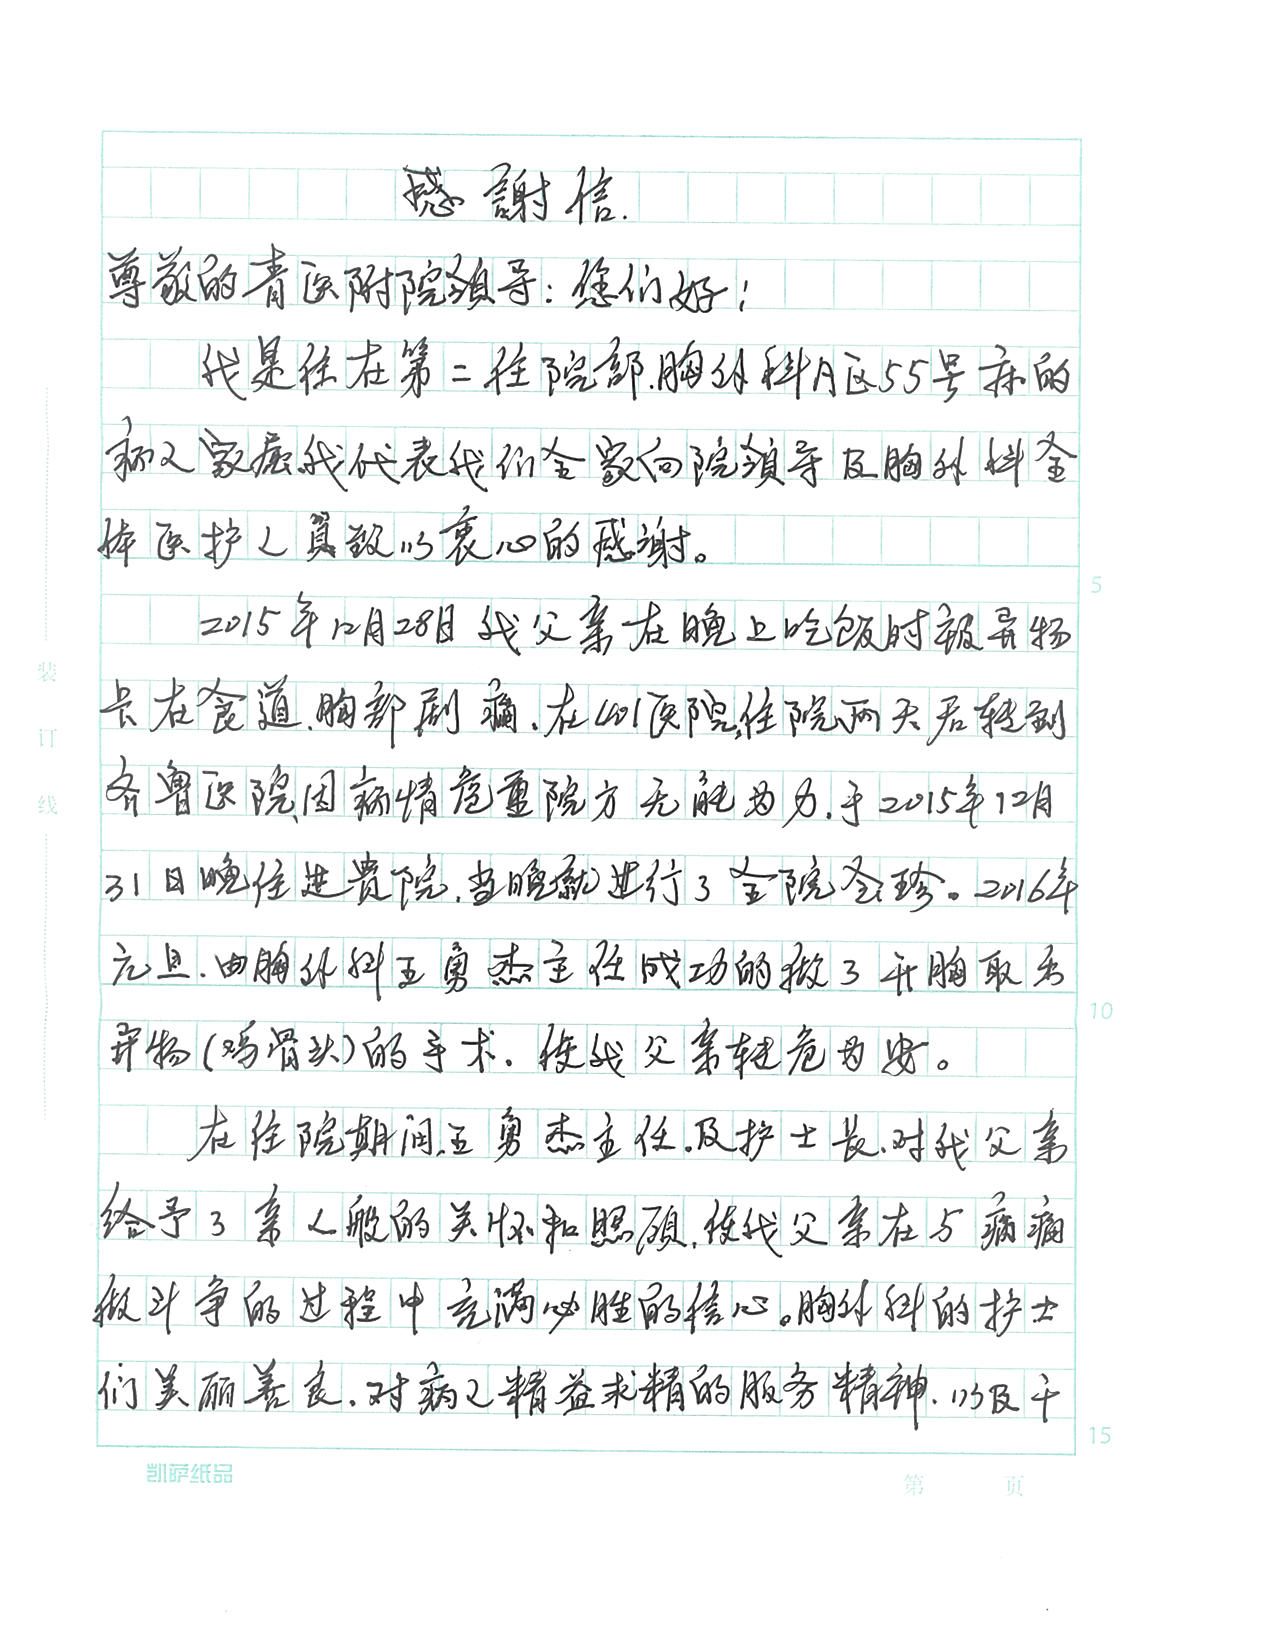 感謝信.
尊敬的青医附院領导：您们好！
我是住在第二住院部.胸外科A区55号床的
病人家属我代表我们全家向院領导及胸外科全
体医护人員致以衷心的感謝。
2015年12月28日我父亲在晚上吃饭时被异物
卡在食道.胸部剧痛.在401医院住院两天后转到
齐鲁医院因病情危重院方无能为力.于2015年12月
31日晚住进贵院.当晚就进行了全院会珍。2016年
元旦.由胸外科王勇杰主任成功的做了开胸取出
异物(鸡骨头)的手术.使我父亲转危为安。
在住院期间.王勇杰主任.及护士長.对我父亲
给予了亲人般的关怀和照顾.使我父亲在与病痛
做斗争的过程中充满必胜的信心。胸外科的护士
们美丽善良.对病人精益求精的服务精神.以及干
装订线
5
10
15
凯萨纸品
第 页